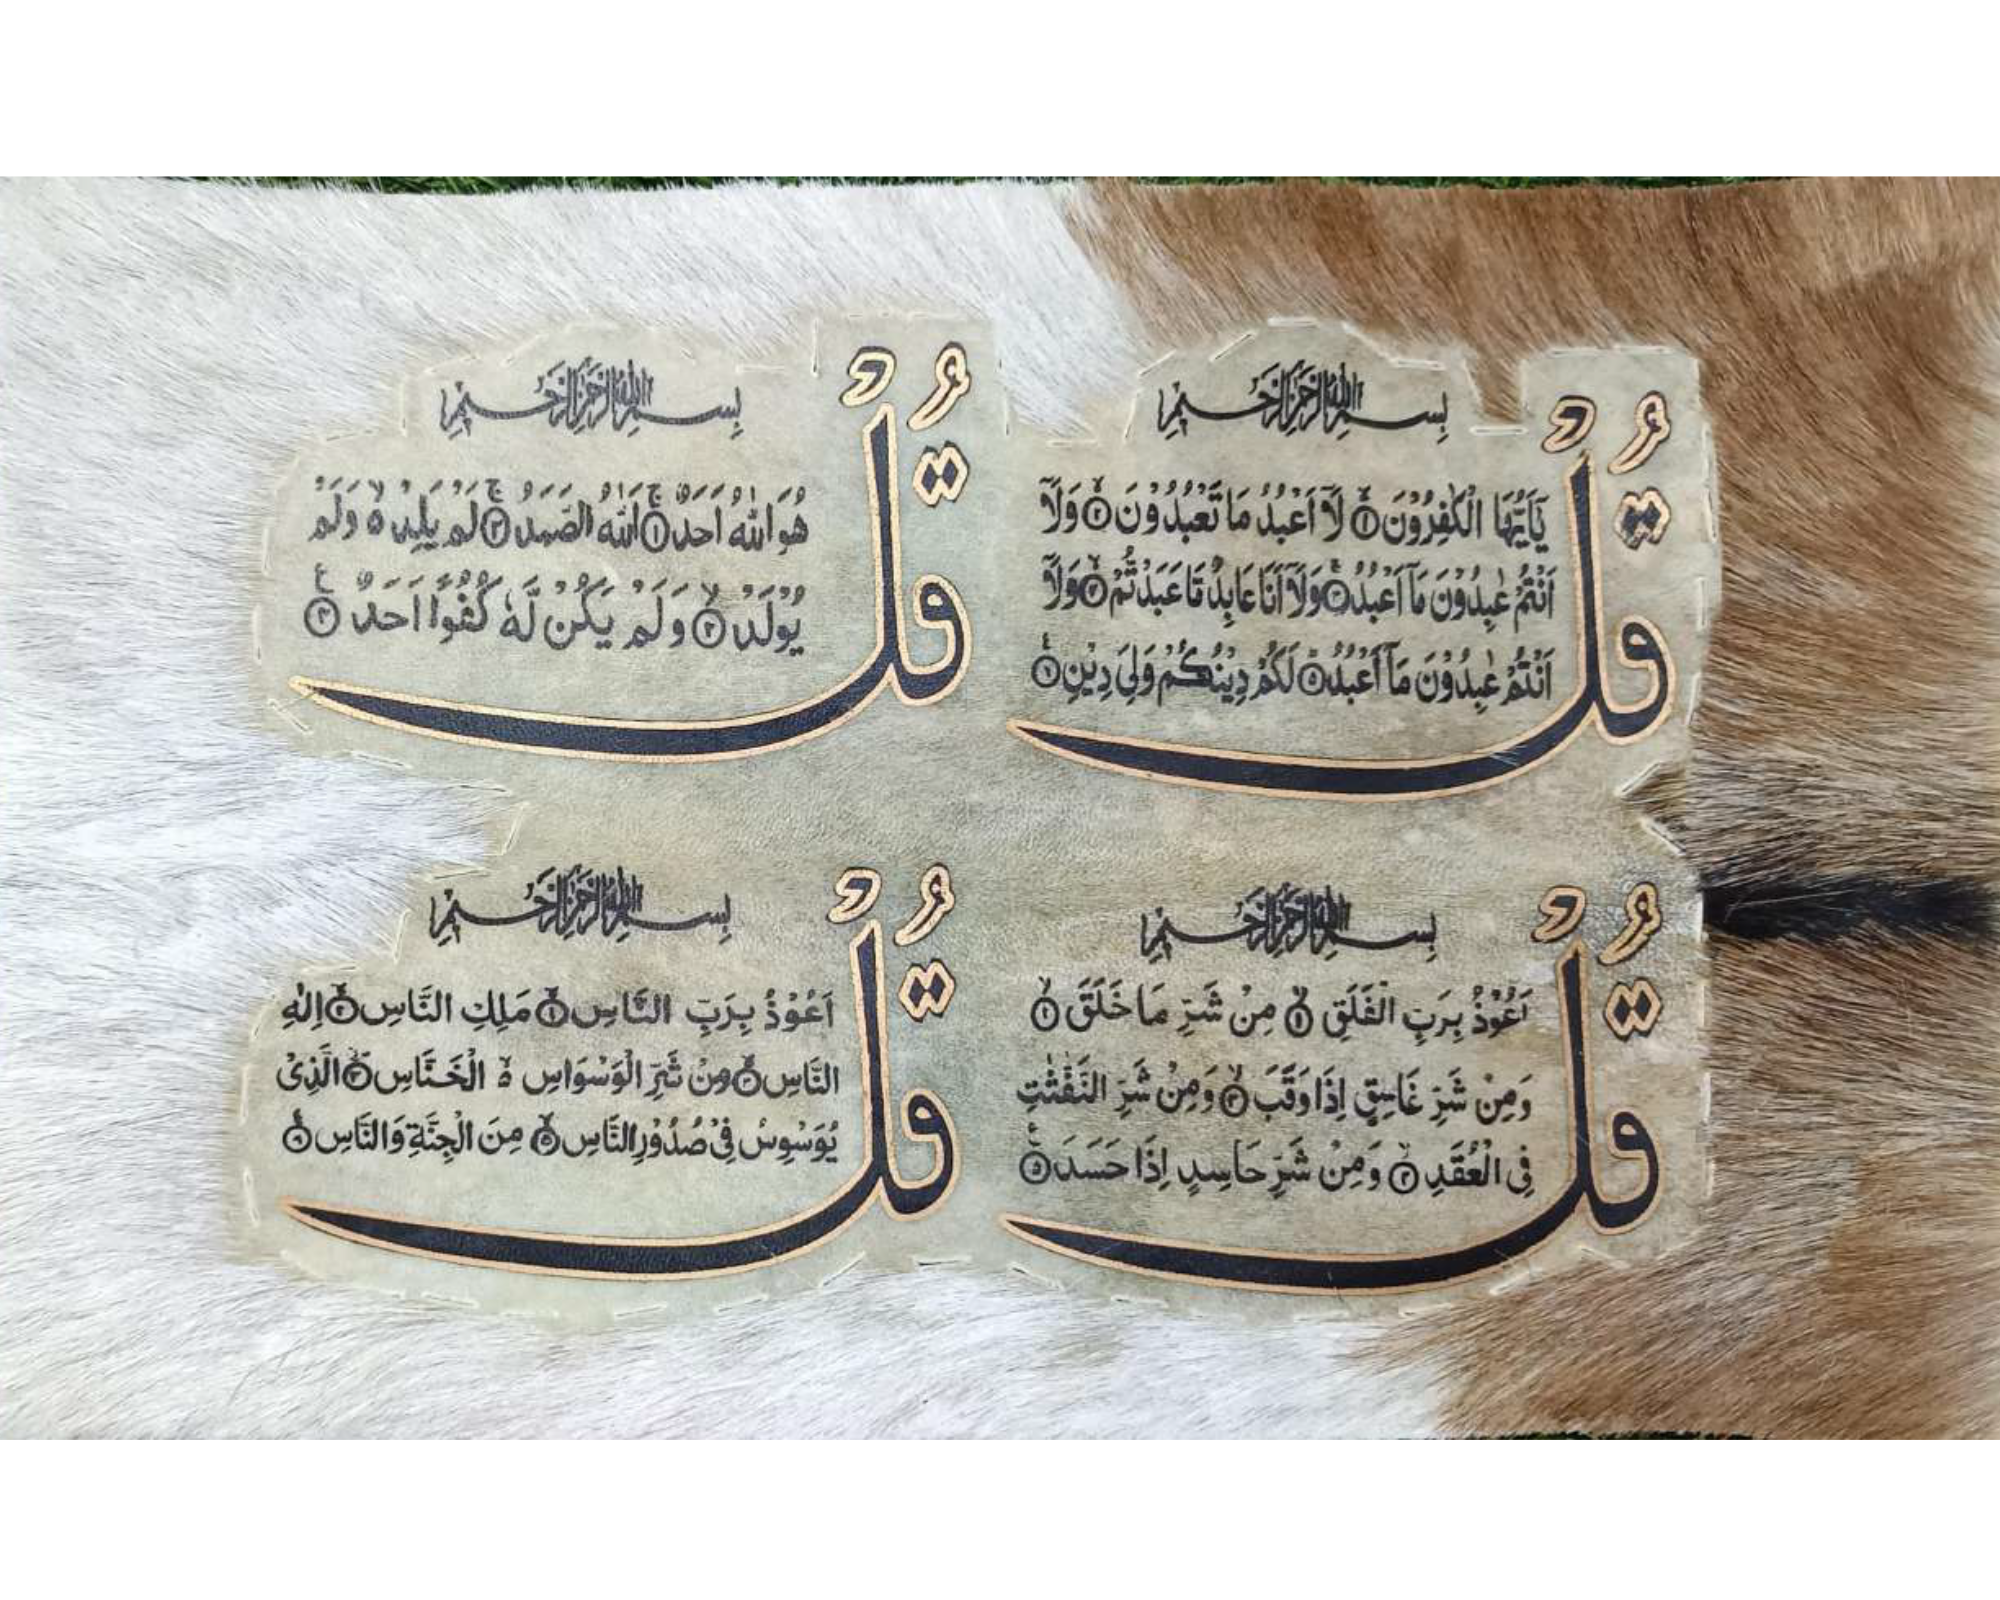 بِسْمِ اللهِ الرَّحْمٰنِ الرَّحِيْمِ
قُلْ
يٰٓاَيُّهَا الْكٰفِرُوْنَ ۙ﴿۱﴾ لَاۤ اَعْبُدُ مَا تَعْبُدُوْنَ ۙ﴿۲﴾ وَلَاۤ
اَنْتُمْ عٰبِدُوْنَ مَاۤ اَعْبُدُ ۚ﴿۳﴾ وَلَاۤ اَنَا عَابِدٌ مَّا عَبَدْتُّمْ ۙ﴿۴﴾ وَلَاۤ
اَنْتُمْ عٰبِدُوْنَ مَاۤ اَعْبُدُ ؕ﴿۵﴾ لَكُمْ دِيْنُكُمْ وَلِيَ دِيْنِ ﴿۶﴾
بِسْمِ اللهِ الرَّحْمٰنِ الرَّحِيْمِ
قُلْ
هُوَ اللّٰهُ اَحَدٌ ۚ﴿۱﴾ اَللّٰهُ الصَّمَدُ ۚ﴿۲﴾ لَمْ يَلِدْ ۙ وَلَمْ
يُوْلَدْ ۙ﴿۳﴾ وَلَمْ يَكُنْ لَّهٗ كُفُوًا اَحَدٌ ﴿۴﴾
بِسْمِ اللهِ الرَّحْمٰنِ الرَّحِيْمِ
قُلْ
اَعُوْذُ بِرَبِّ الْفَلَقِ ۙ﴿۱﴾ مِنْ شَرِّ مَا خَلَقَ ۙ﴿۲﴾
وَمِنْ شَرِّ غَاسِقٍ اِذَا وَقَبَ ۙ﴿۳﴾ وَمِنْ شَرِّ النَّفّٰثٰتِ
فِى الْعُقَدِ ۙ﴿۴﴾ وَمِنْ شَرِّ حَاسِدٍ اِذَا حَسَدَ ﴿۵﴾
بِسْمِ اللهِ الرَّحْمٰنِ الرَّحِيْمِ
قُلْ
اَعُوْذُ بِرَبِّ النَّاسِ ۙ﴿۱﴾ مَلِكِ النَّاسِ ۙ﴿۲﴾ اِلٰهِ
النَّاسِ ۙ﴿۳﴾ مِنْ شَرِّ الْوَسْوَاسِ ۙ الْخَنَّاسِ ۙ﴿۴﴾ الَّذِىْ
يُوَسْوِسُ فِىْ صُدُوْرِ النَّاسِ ۙ﴿۵﴾ مِنَ الْجِنَّةِ وَالنَّاسِ ﴿۶﴾